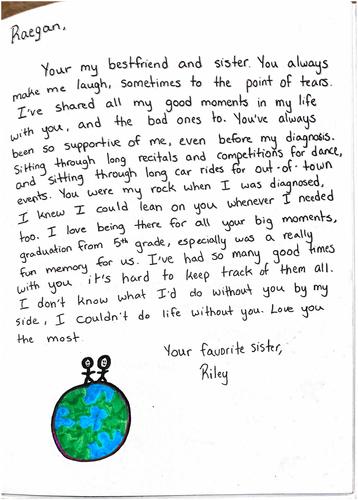 Raegan,
Your my bestfriend and sister. You always
make me laugh, sometimes to the point of tears.
I've shared all my good moments in my life
with you, and the bad ones to. You've always
been so supportive of me, even before my diagnosis.
Sitting through long recitals and competitions for dance,
and sitting through long car rides for out-of-town
events. You were my rock when I was diagnosed,
I knew I could lean on you whenever I needed
too. I love being there for all your big moments,
graduation from 5th grade, especially was a really
fun memory for us. I've had so many good times
with you it's hard to keep track of them all.
I don't know what I'd do without you by my
side, I couldn't do life without you. Love you
the most.
Your favorite sister,
Riley